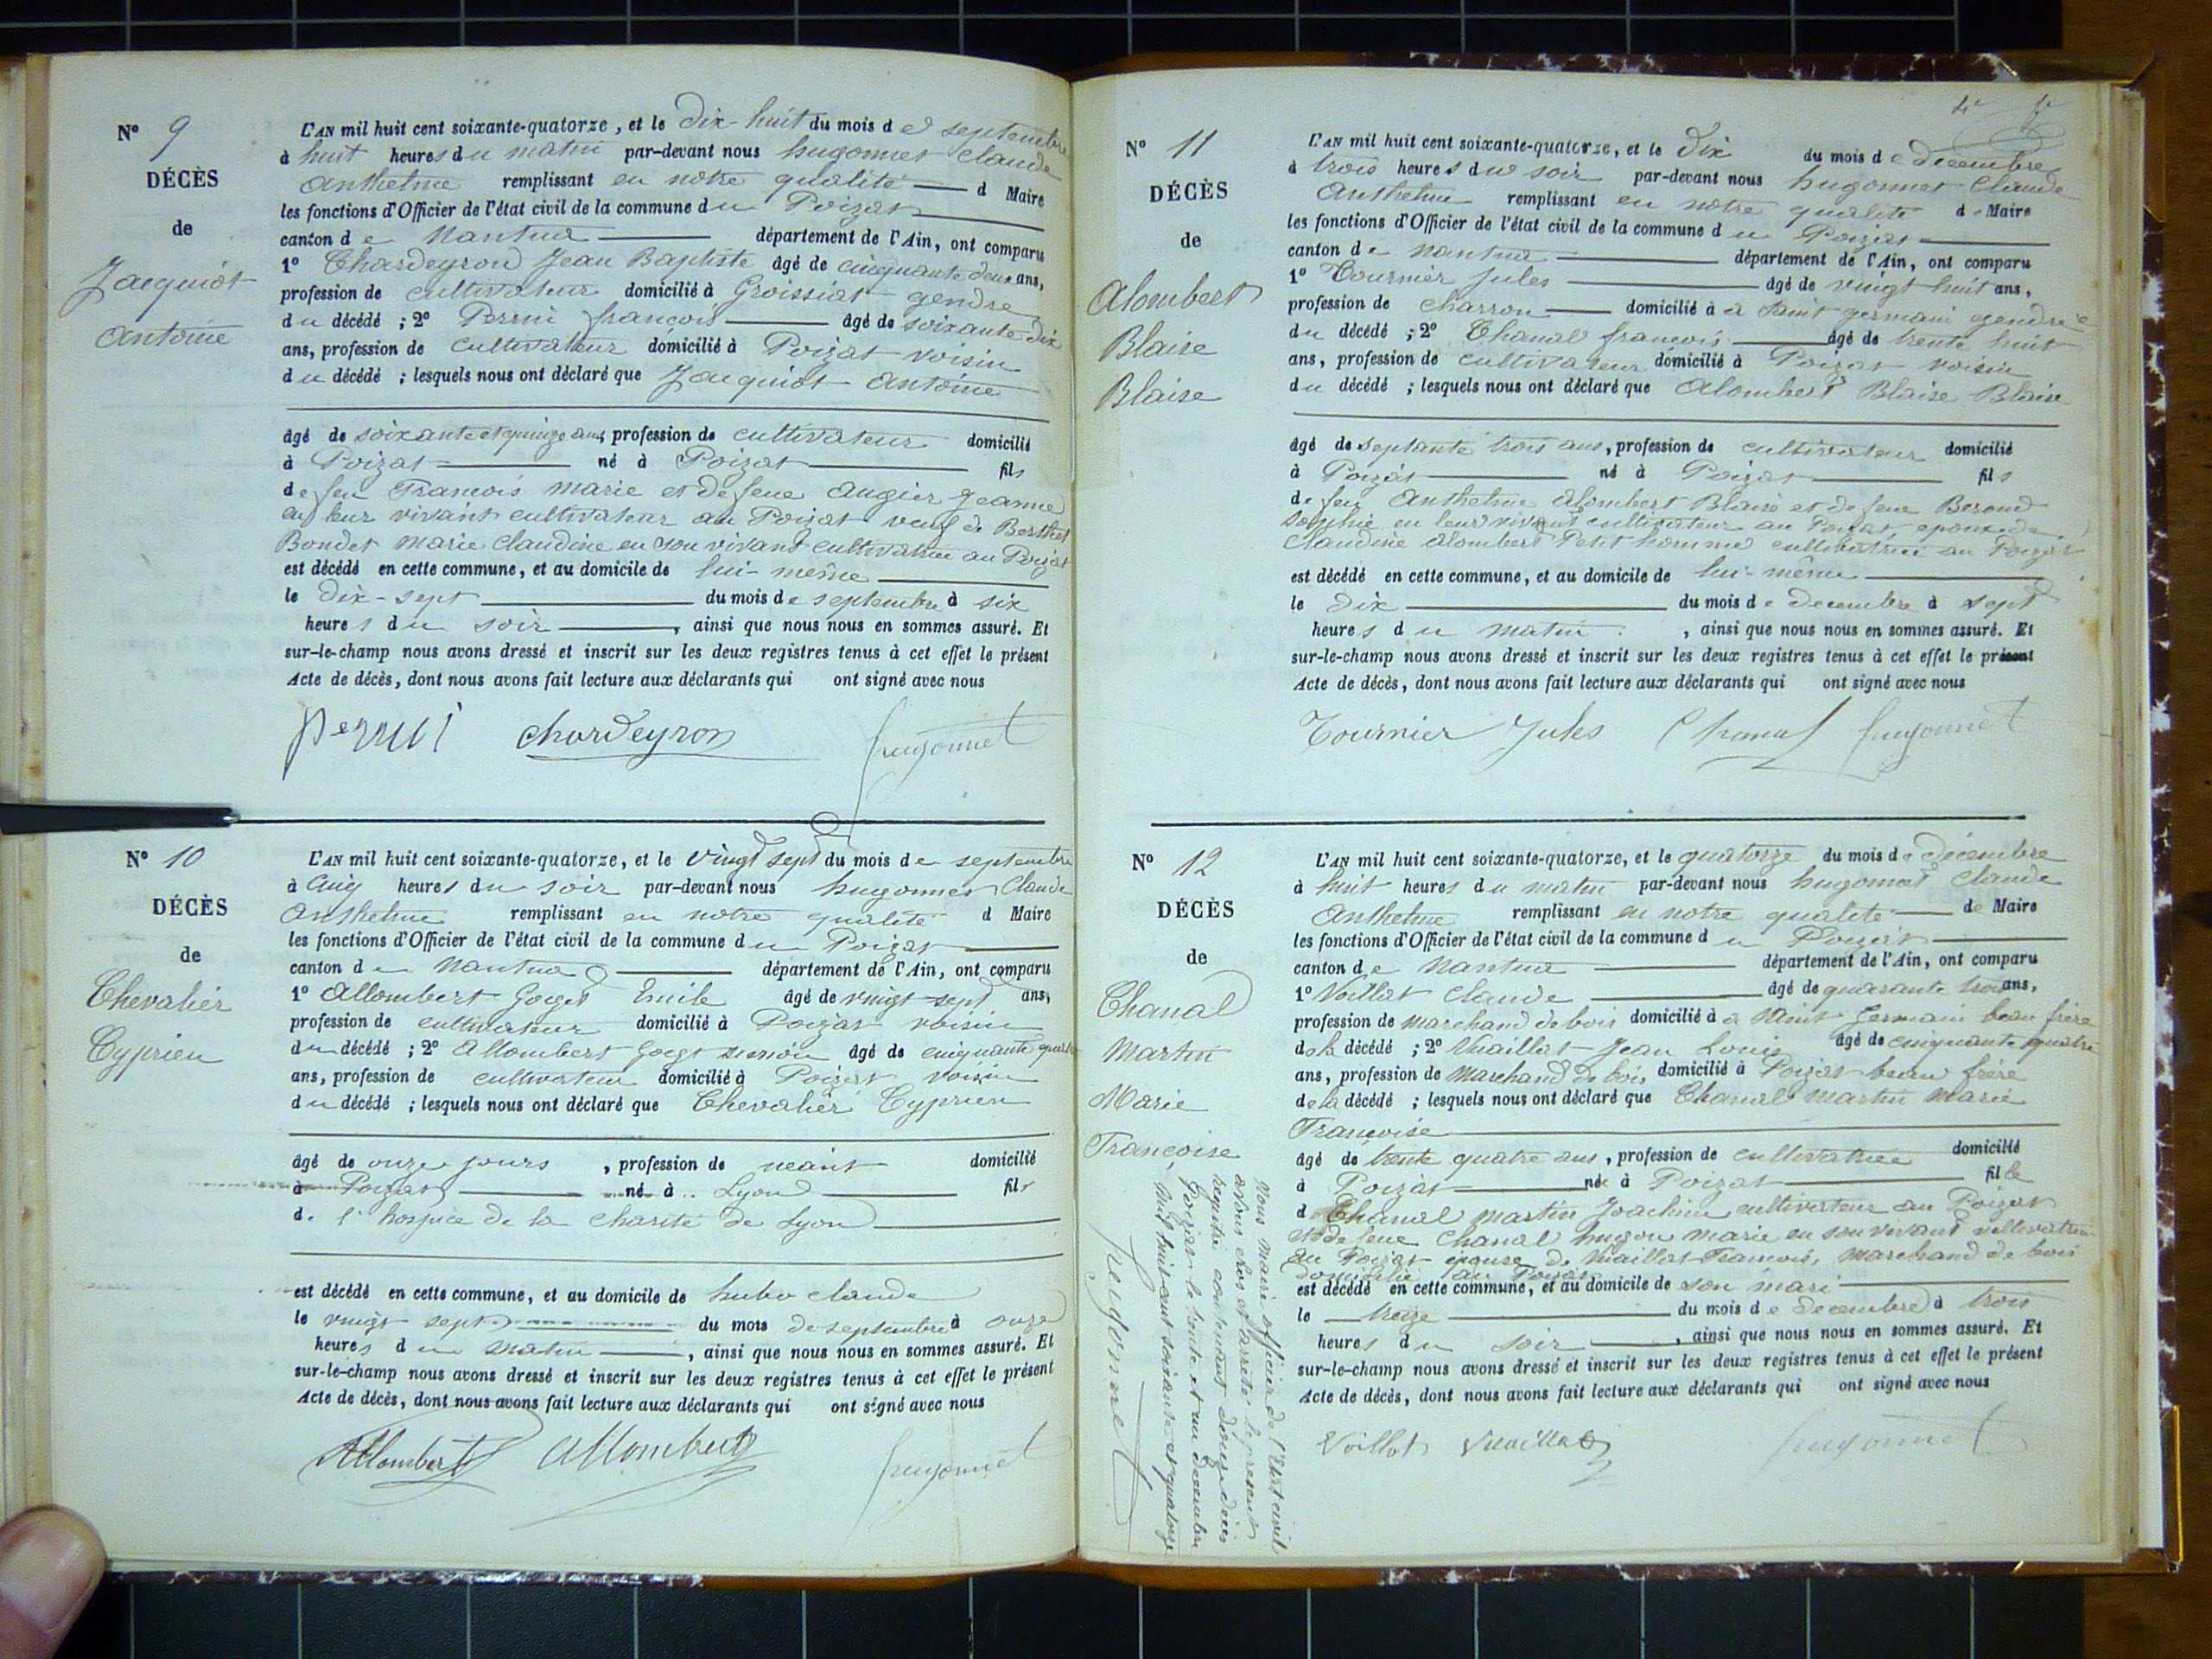 N° 9
DÉCÈS
de
Jacquiot
Antoine
L'AN mil huit cent soixante-quatorze, et le Dix-huit du mois de septembre
à huit heures du matin par-devant nous hugonnet Claude
Anthelme remplissant en notre qualité d Maire
les fonctions d'Officier de l'état civil de la commune du Poizat
canton de Nantua département de l'Ain, ont comparu
1° Chardeyron Jean Baptiste âgé de cinquante deux ans,
profession de cultivateur domicilié à Groissiat gendre
du décédé ; 2° Perrin françois âgé de soixante-dix
ans, profession de cultivateur domicilié à Poizat voisin
du décédé ; lesquels nous ont déclaré que Jacquiot Antoine
âgé de soixante et quinze ans, profession de cultivateur domicilié
à Poizat né à Poizat fils
de feu François marie et de feue Augier Jeanne
en leur vivant cultivateur au Poizat veuf de Berthet
Bondet marie Claudine en son vivant cultivatrice au Poizat
est décédé en cette commune, et au domicile de lui-même
le Dix-sept du mois de septembre à six
heures du soir, ainsi que nous nous en sommes assuré. Et
sur-le-champ nous avons dressé et inscrit sur les deux registres tenus à cet effet le présent
Acte de décès, dont nous avons fait lecture aux déclarants qui ont signé avec nous
chardeyron hugonnet
N° 10
DÉCÈS
de
Chevalier
Cyprien
L'AN mil huit cent soixante-quatorze, et le vingt sept du mois de septembre
à Cinq heures du soir par-devant nous hugonnet Claude
Anthelme remplissant en notre qualité d Maire
les fonctions d'Officier de l'état civil de la commune du Poizat
canton de Nantua département de l'Ain, ont comparu
1° Allombert Goget Emile âgé de vingt-sept ans,
profession de cultivateur domicilié à Poizat voisin
du décédé ; 2° Allombert Goget âgé de cinquante quatre
ans, profession de cultivateur domicilié à Poizat voisin
du décédé ; lesquels nous ont déclaré que Chevalier Cyprien
âgé de onze jours, profession de neant domicilié
à Poizat né à Lyon fils
de l'hospice de la charité de Lyon
est décédé en cette commune, et au domicile de claude
le vingt sept du mois de septembre à onze
heures du matin, ainsi que nous nous en sommes assuré. Et
sur-le-champ nous avons dressé et inscrit sur les deux registres tenus à cet effet le présent
Acte de décès, dont nous avons fait lecture aux déclarants qui ont signé avec nous
Allombert Allombert hugonnet
N° 11
DÉCÈS
de
Alombert
Blaise
Blaise
L'AN mil huit cent soixante-quatorze, et le Dix du mois de Decembre
à trois heures du soir par-devant nous hugonnet Claude
Anthelme remplissant en notre qualité de Maire
les fonctions d'Officier de l'état civil de la commune du Poizat
canton de Nantua département de l'Ain, ont comparu
1° Tournier Jules âgé de vingt huit ans,
profession de charron domicilié à a saint germain gendre
du décédé ; 2° Chanal françois âgé de trente huit
ans, profession de cultivateur domicilié à Poizat voisin
du décédé ; lesquels nous ont déclaré que Alombert Blaise Blaise
âgé de septante trois ans, profession de cultivateur domicilié
à Poizat né à Poizat fils
de feu Anthelme Alombert Blaise et de feue Beroud
Sophie en leur vivant cultivateur au Poizat epoux de
Claudine Alombert Petit homme cultivatrice au Poizat
est décédé en cette commune, et au domicile de lui-même
le Dix du mois de Decembre à sept
heures du matin, ainsi que nous nous en sommes assuré. Et
sur-le-champ nous avons dressé et inscrit sur les deux registres tenus à cet effet le présent
Acte de décès, dont nous avons fait lecture aux déclarants qui ont signé avec nous
Tournier Jules Chanal hugonnet
N° 12
DÉCÈS
de
Chanal
Martin
Marie
Francoise
L'AN mil huit cent soixante-quatorze, et le quatorze du mois de Décembre
à huit heures du matin par-devant nous hugonnet Claude
Anthelme remplissant en notre qualité de Maire
les fonctions d'Officier de l'état civil de la commune du Poizat
canton de Nantua département de l'Ain, ont comparu
1° Voillat Claude âgé de quarante trois ans,
profession de marchand de bois domicilié à a saint Germain beau frère
de la décédé ; 2° Vuaillat Jean Louis âgé de cinquante quatre
ans, profession de Marchand de bois domicilié à Poizat beau frère
de la décédé ; lesquels nous ont déclaré que Chanal Martin Marie
Francoise
âgé de trente quatre ans, profession de cultivatrice domicilié
à Poizat née à Poizat fille
d Chanal martin Joachim cultivateur au Poizat
et de feue Chanal hugon marie en son vivant cultivatrice
au Poizat épouse de Vuaillat Francois, marchand de bois
domicilié au Poizat
est décédé en cette commune, et au domicile de son mari
le treize du mois de decembre à trois
heures du soir, ainsi que nous nous en sommes assuré. Et
sur-le-champ nous avons dressé et inscrit sur les deux registres tenus à cet effet le présent
Acte de décès, dont nous avons fait lecture aux déclarants qui ont signé avec nous
Voillat Vuaillat hugonnet
Nous maire officier de l'Etat civil
avons clos et arrêté le present
registre contenant douze décès
Poizat le trente et un decembre
mil huit cent soixante et quatorze
hugonnet